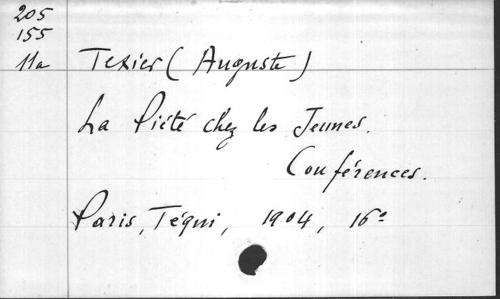 205
155
11a
Texier (Auguste)
La Piété chez les Jeunes.
Conférences.
Paris, Téqui, 1904, 16º